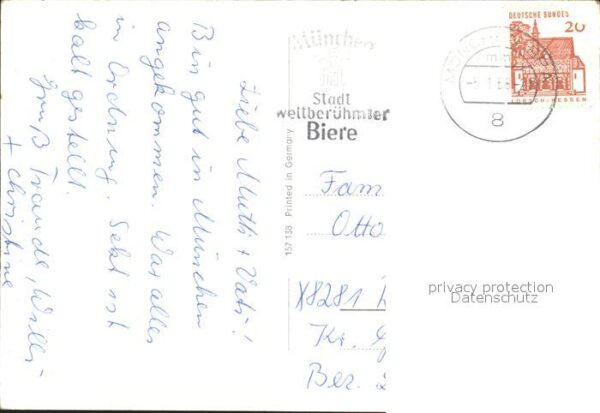 Liebe Mutti + Vati!
Bin gut in München
angekommen. War alles
in Ordnung. Sekt ist
kalt gestellt.
Gruß Traude, Willi
+ Christine
München
Stadt
weltberühmter
Biere
157 138 Printed in Germany
DEUTSCHE BUNDES
20
LORSCH/HESSEN
8
Fam
Otto
X8281
Kr.
Bez.
privacy protection
Datenschutz